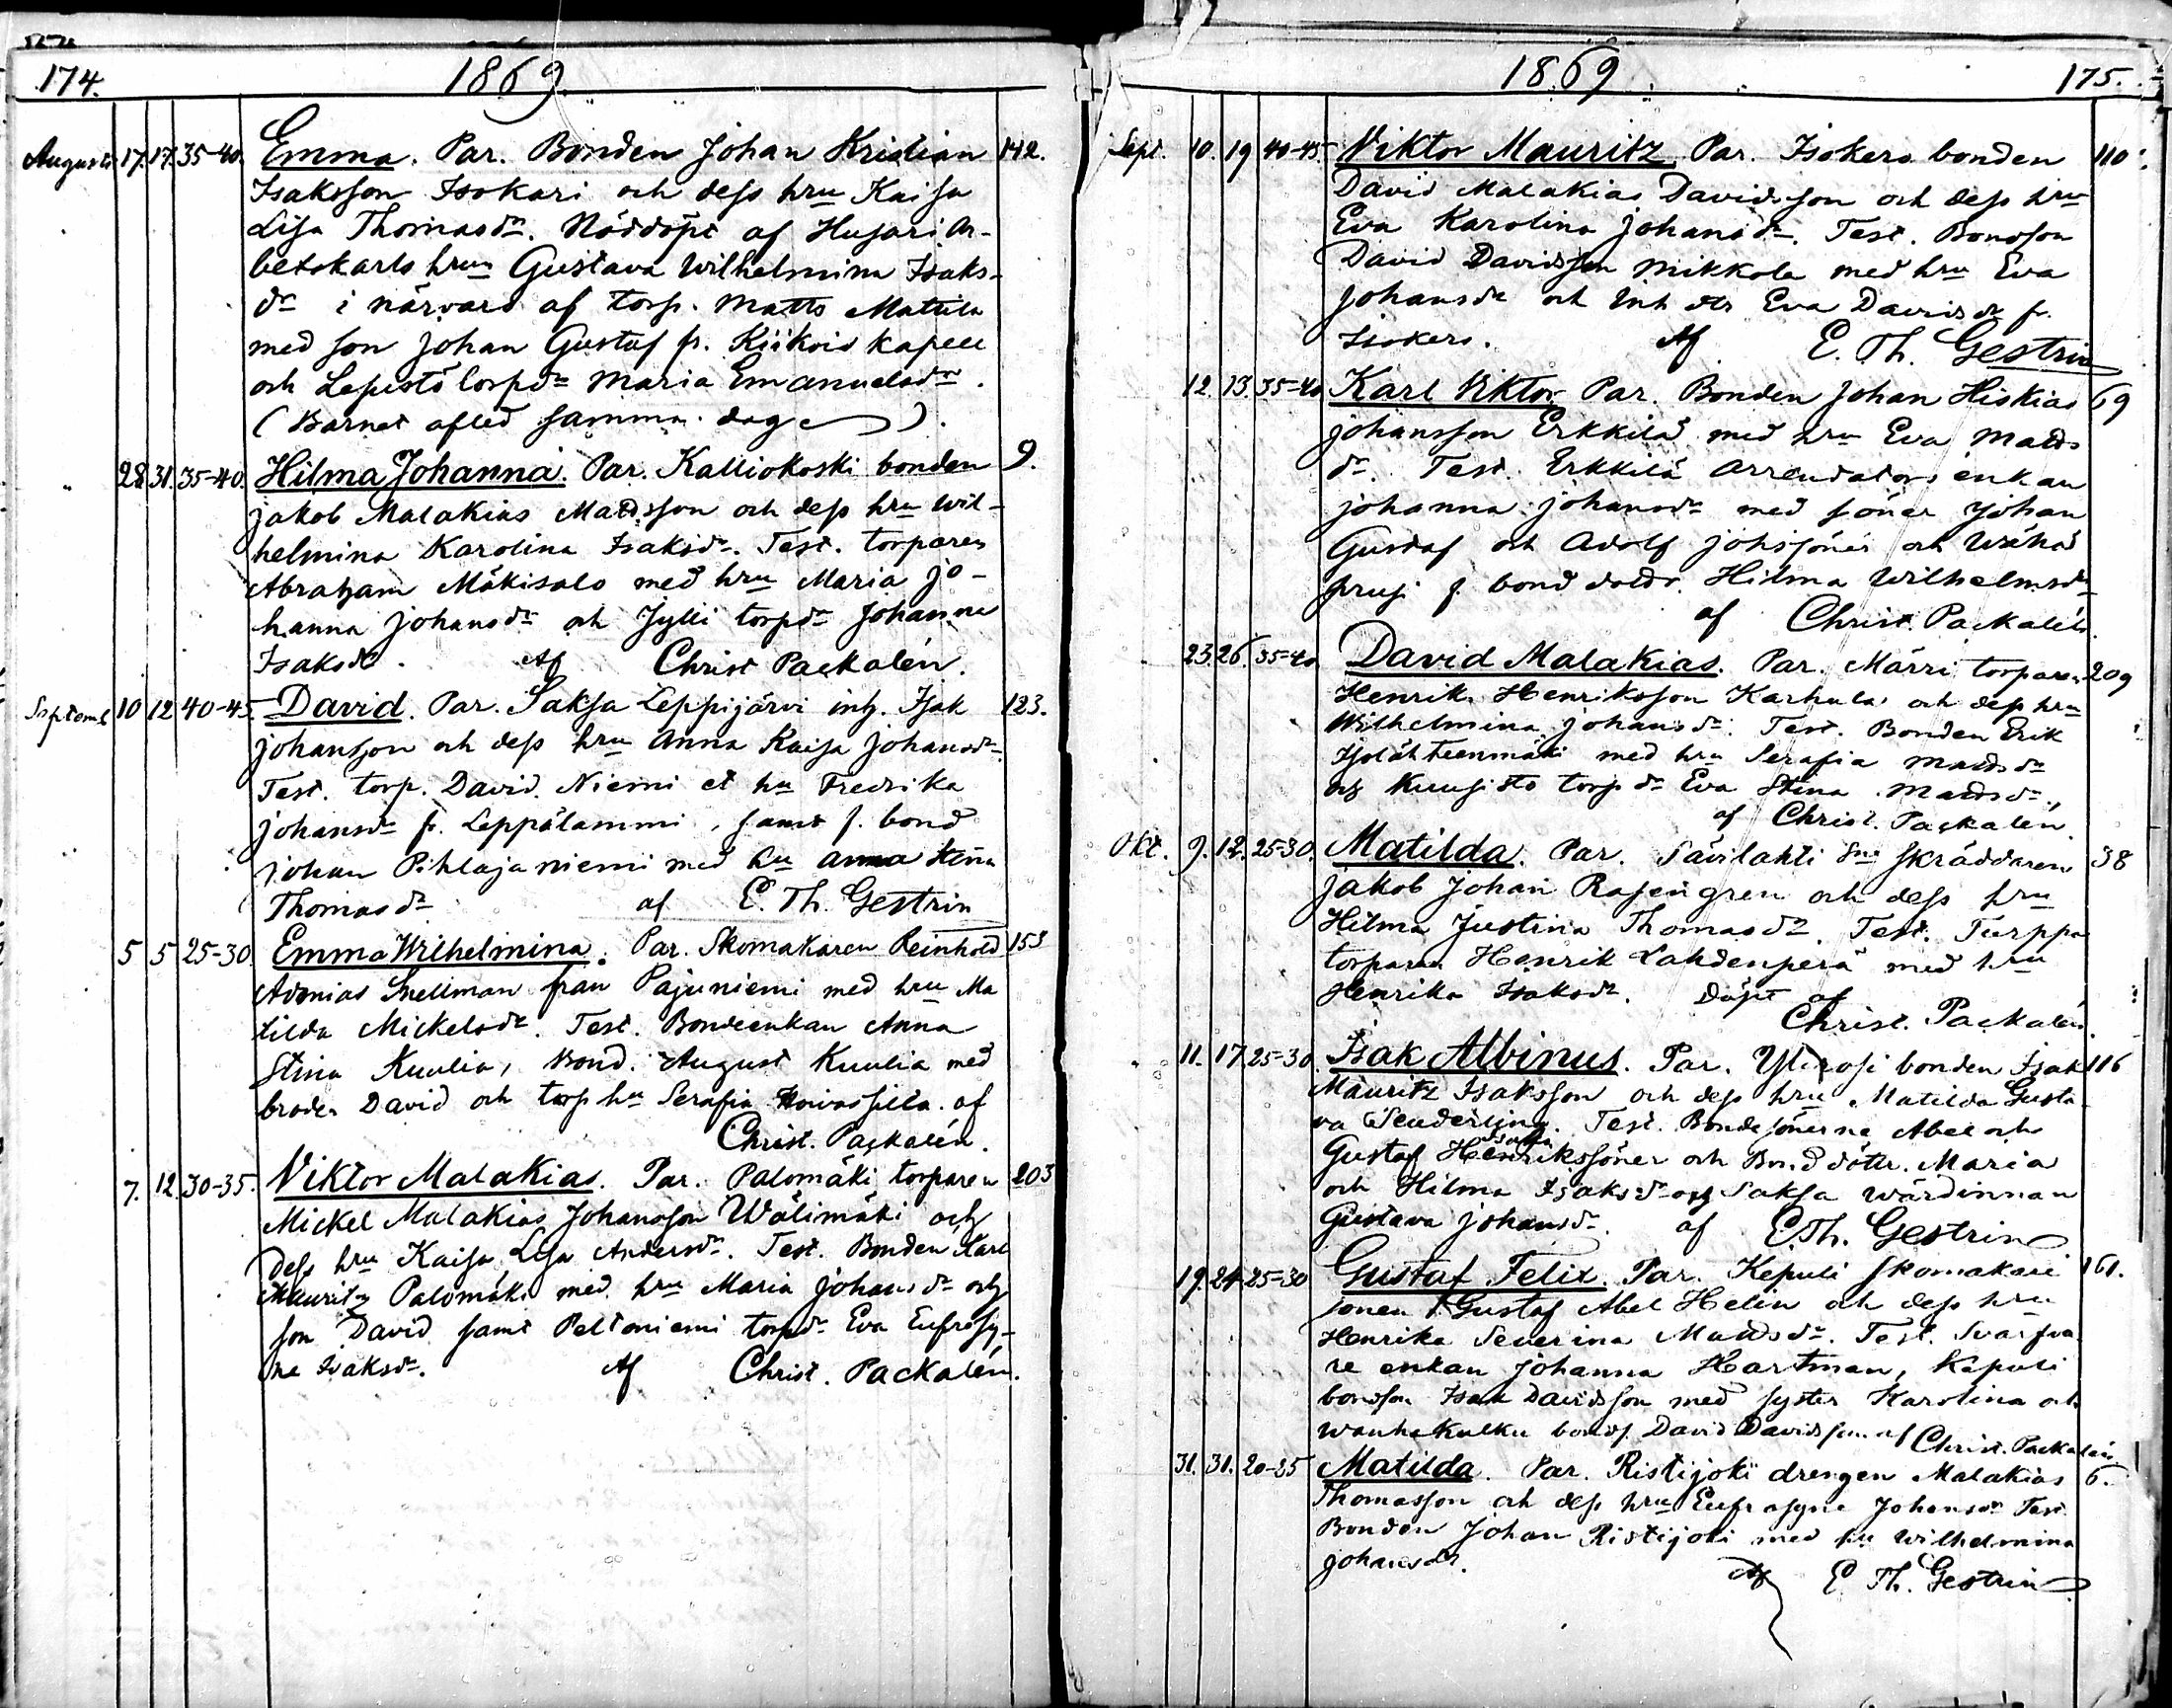 174.
1869.
Augusti 17. 17. 35-40. Emma. Par. Bonden Johan Kristian 142.
Isaksson Isokari och dess hru Kaisa
Lisa Thomasdr. Nöddöpt af Husari Ar-
betskarls hrun Gustava Wilhelmina Isaks-
dr i närvaro af torp. Matts Mattila
med son Johan Gustaf fr. Kiikois kapell
och Lepistö torpdr Maria Emanuelsdr.
(Barnet afled samma dag).
" 28. 31. 35-40. Hilma Johanna. Par. Kalliokoski bonden 9.
Jakob Malakias Mattsson och dess hru Wil-
helmina Karolina Isaksdr. Test. torparen
Abraham Mäkisalo med hru Maria Jo-
hanna Johansdr och Jylli torpdr Johanna
Isaksdr. Af Christ Packalén.
Septemb 10 12 40-45. David. Par. Saksa Leppijärvi inh. Isak 123.
Johansson och dess hru Anna Kaisa Johansdr.
Test. torp. David Niemi et hu Fredrika
Johansdr fr. Leppälammi, samt f. bond
Johan Pihlajaniemi med hu Anna Stina
Thomasdr af E. Th. Gestrin
5 5 25-30. Emma Wilhelmina. Par. Skomakaren Reinhold 153
Adonias Snellman från Pajuniemi med hru Ma
tilda Mickelsdr. Test. Bondeenkan Anna
Stina Kuulia, Bond. August Kuulia med
broder David och torp hu Serafia Koivassilta. af
Christ. Packalén.
7. 12. 30-35. Viktor Malakias. Par. Palomäki torparen 203
Mickel Malakias Johansson Wälimäki och
dess hru Kaisa Lisa Andersdr. Test. Bonden Karl
Mauritz Palomäki med hru Maria Johansdr och
son David samt Peltoniemi torpdr Eva Eufrosy-
ne Isaksdr. Af Christ. Packalén.
1869.
175.
Sept. 10. 19 40-45 Viktor Mauritz. Par. Isokero bonden 110.
David Malakias Davidsson och dess hru
Eva Karolina Johansdr. Test. Bondson
David Davidsson Mikkola med hru Eva
Johansdr och inh dtr Eva Davidsdr fr.
Isokero. Af E. Th. Gestrin
12. 13. 35-40 Karl Viktor. Par. Bonden Johan Hiskias 69
Johansson Erkkilä med hru Eva Matts
dr. Test. Erkkilä arrendators enkan
Johanna Johansdr med söner Johan
Gustaf och Adolf Johssöner och
f. bond dottr. Hilma Wilhelmsdr
af Christ. Packalén.
23. 26. 35-40 David Malakias. Par. Märri torparen 209
Henrik Henriksson Karhula och dess hru
Wilhelmina Johansdr. Test. Bonden Erik
Isolähteenmäki med hru Serafia Mattsdr
och Kuusisto torpdr Eva Stina Mattsdr,
af Christ. Packalén.
Okt. 9. 12. 25-30. Matilda. Par. Sävilahti Sne Skräddaren 38
Jakob Johan Rosengren och dess hru
Hilma Justina Thomasdr. Test. Turppa
torparen Henrik Lahdenperä med hru
Henrika Isaksdr. Döpt af
Christ. Packalén.
" 11. 17. 25-30. Isak Albinus. Par. Yli bonden Isak 116
Mauritz Isaksson och dess hru Matilda Gusta
va . Test. Bondesönerne Abel och
Gustaf Henrikssöner och Bonddöttr. Maria
och Hilma Isaksdr och Saksa Wärdinnan
Gustava Johansdr. af E. Th. Gestrin
19. 24. 25-30 Gustaf Felix. Par. Kepuli Skomakare 161.
sonen Gustaf Abel Helin och dess hru
Henrika Severina Mattsdr. Test. Svarfva
re enkan Johanna Hartman, Kepuli
bondson Isak Davidsson med syster Karolina och
Wanhakulku bonds. David Davidsson af Christ. Packalén
31. 31. 20-25 Matilda. Par. Ristijoki drengen Malakias 6.
Thomasson och dess hru Eufrosyne Johansdr Test.
Bonden Johan Ristijoki med hu Wilhelmina
Johansdr. Af E. Th. Gestrin